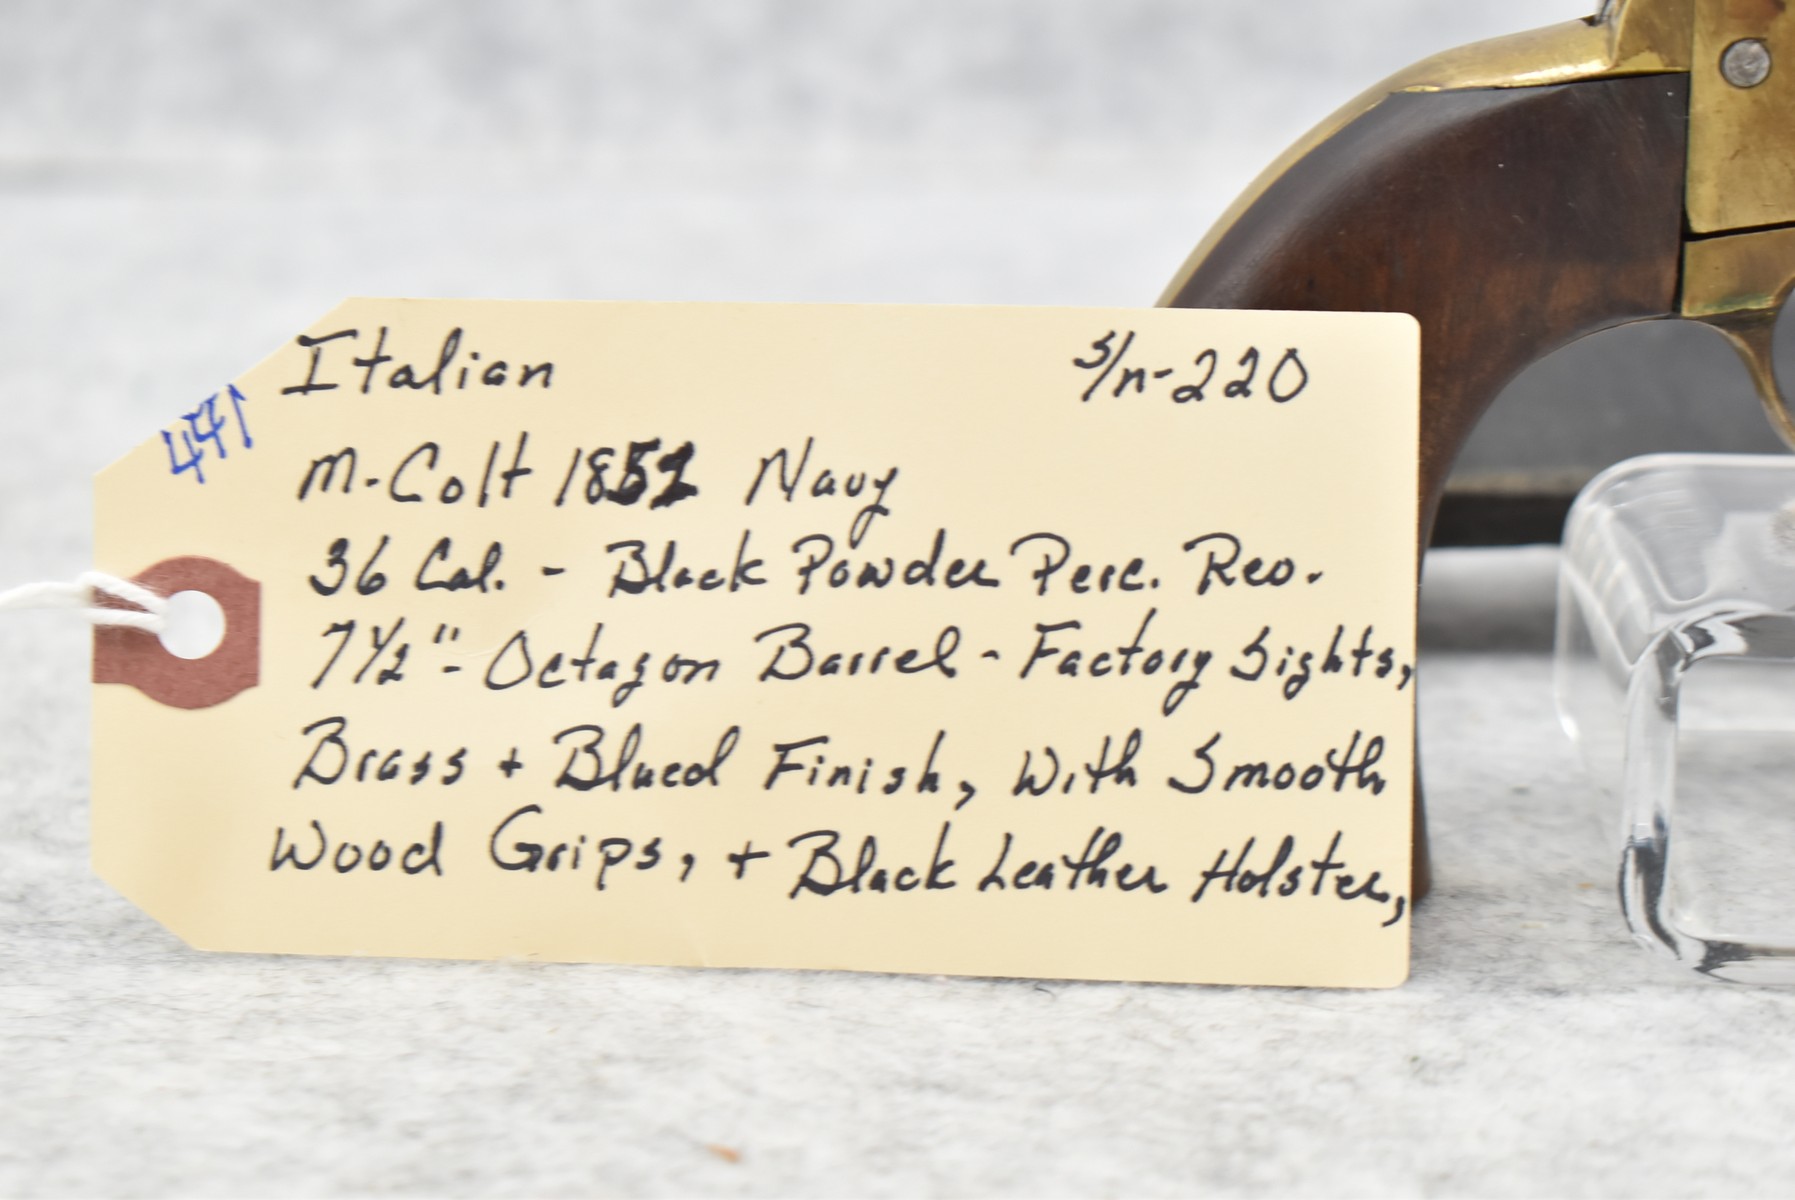 Italian S/n-220
441
M-Colt 1851 Navy
36 Cal. - Black Powder Perc. Rev.
7½"- Octagon Barrel - Factory Sights,
Brass + Blued Finish, With Smooth
Wood Grips, + Black Leather Holster,